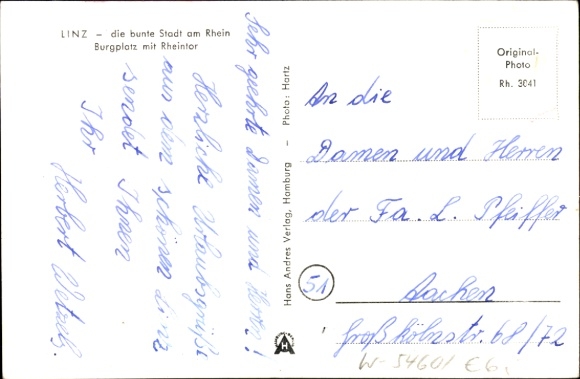 LINZ – die bunte Stadt am Rhein
Burgplatz mit Rheintor
Sehr geehrte Damen und Herren!
Herzliche Urlaubsgrüße
aus dem schönen Linz
sendet Ihnen
Ihr
Herbert Wetzels.
Hans Andres Verlag, Hamburg – Photo: Hartz
Original-
Photo
Rh. 3041
An die
Damen und Herren
der Fa. L. Pfeiffer
51
Aachen
Großkölnstr. 68/72
W-5460/ €6,
AH